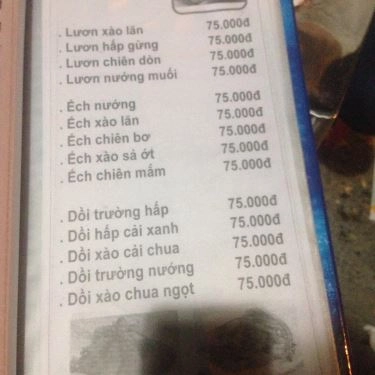 . Lươn xào lăn 75.000đ
. Lươn hấp gừng 75.000đ
. Lươn chiên dòn 75.000đ
. Lươn nướng muối 75.000đ
. Ếch nướng 75.000đ
. Ếch xào lăn 75.000đ
. Ếch chiên bơ 75.000đ
. Ếch xào sả ớt 75.000đ
. Ếch chiên mắm 75.000đ
. Dồi trường hấp 75.000đ
. Dồi hấp cải xanh 75.000đ
. Dồi xào cải chua 75.000đ
. Dồi trường nướng 75.000đ
. Dồi xào chua ngọt 75.000đ